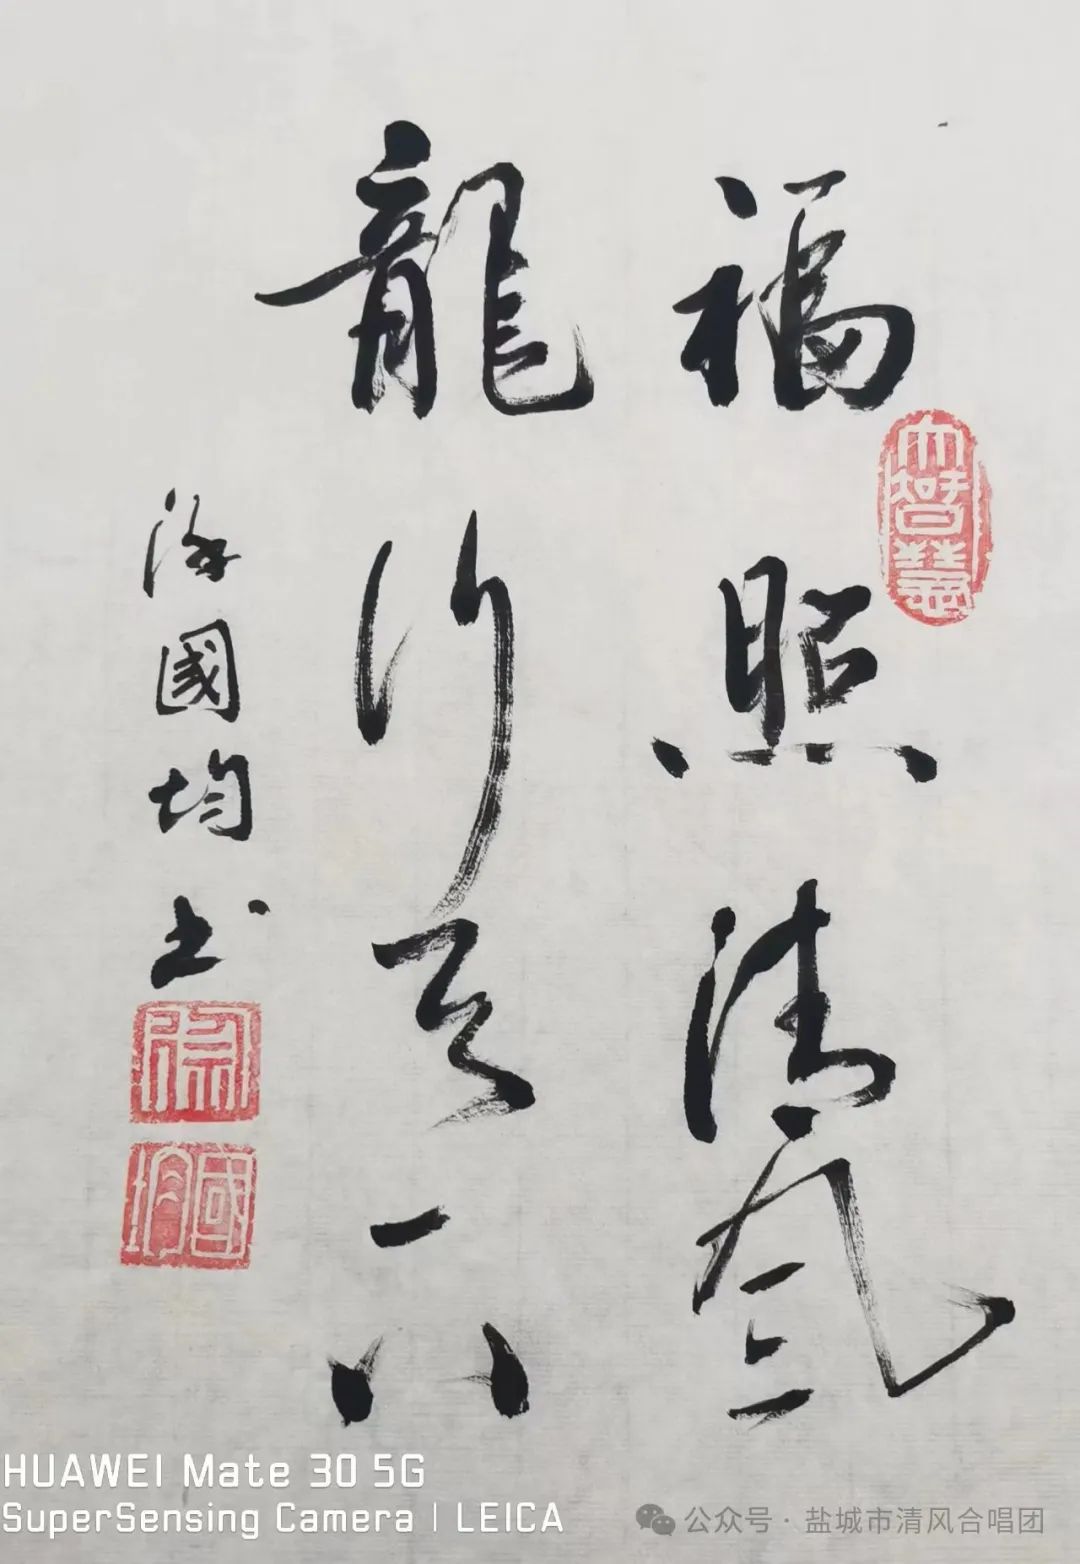 福照清風
龍行天下
徐國均书
大智慧
徐
國均
HUAWEI Mate 30 5G
SuperSensing Camera | LEICA
公众号 · 盐城市清风合唱团